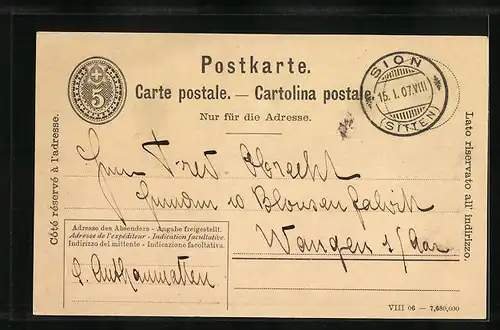 Postkarte.
Carte postale. — Cartolina postale
Nur für die Adresse.
5
SION
15. I. 07. VIII
(SITTEN)
Côté réservé à l'adresse.
Lato riservato all' indirizzo.
Herrn Fred Obrecht
Blousenfabrik
Wangen a/Aar
Adresse des Absenders - Angabe freigestellt.
Adresse de l'expéditeur - Indication facultative.
Indirizzo del mittente - Indicazione facoltativa.
Anthanmatten
VIII 06 — 7,680,000